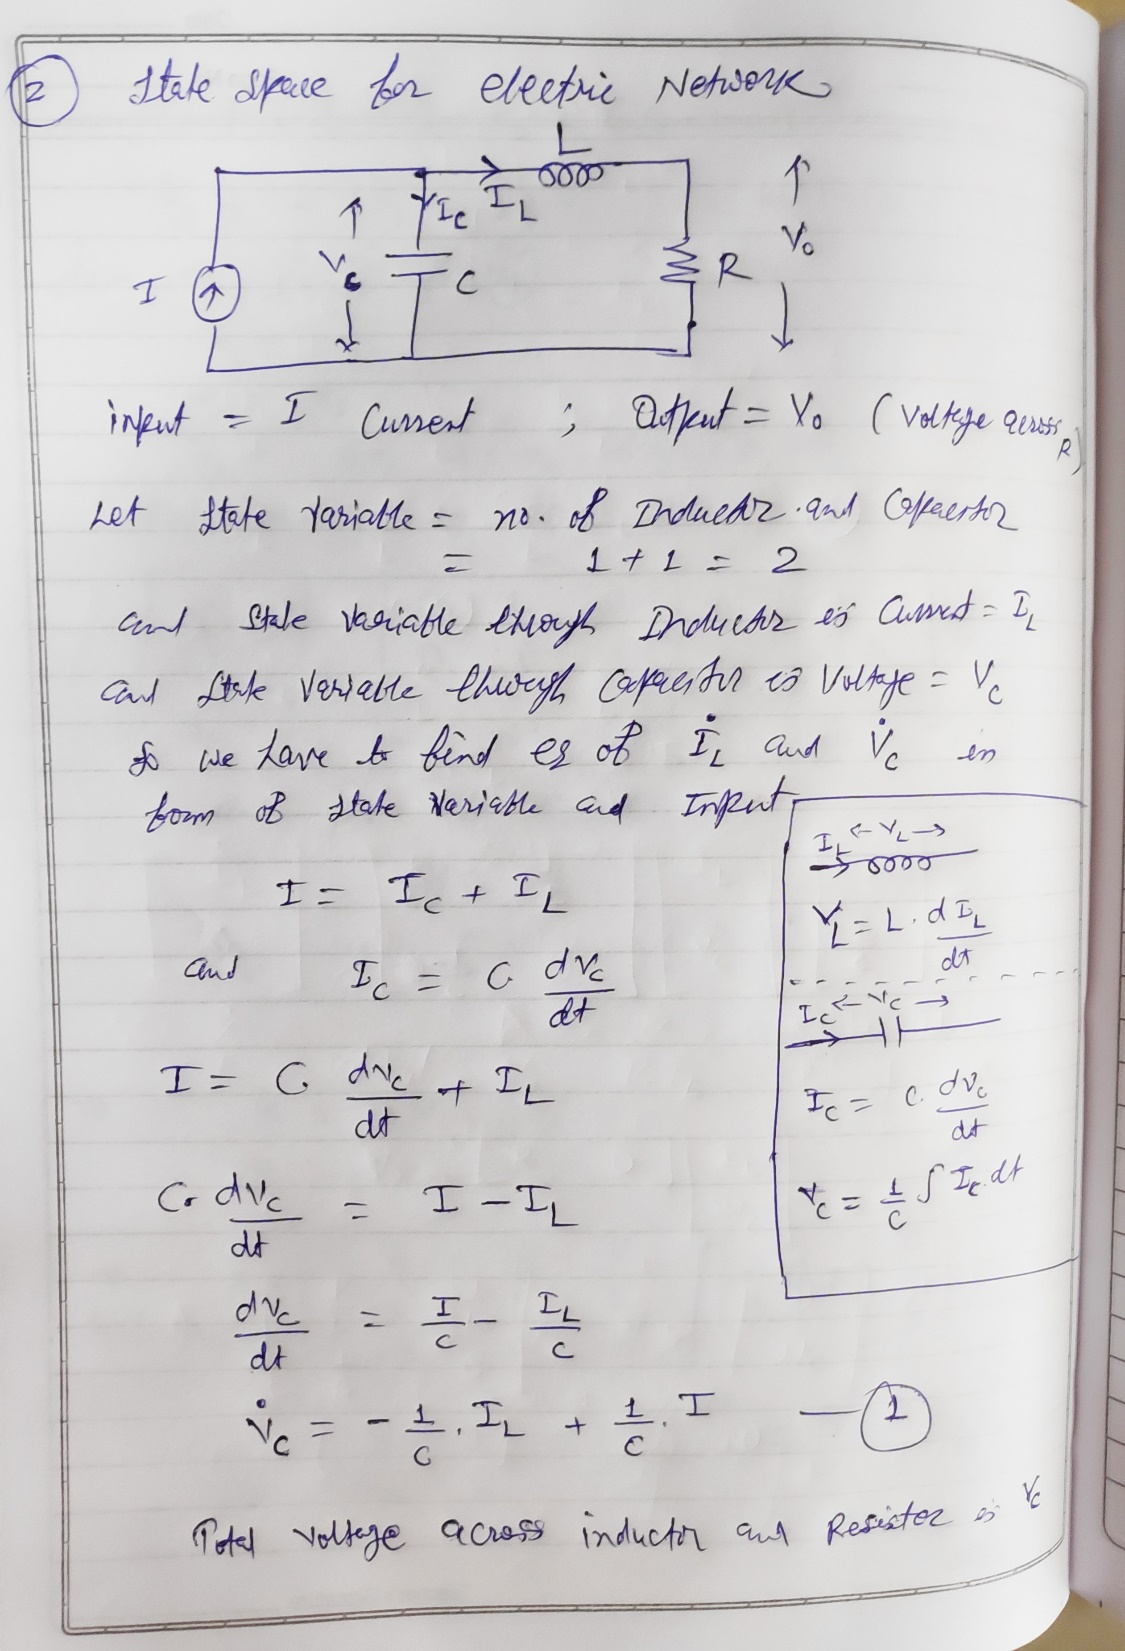 2 State Space for electric Network
L
I_C I_L
V_C C R V_o
I
input = I Current ; Output = V_o (Voltage across R)
Let State Variable = no. of Inductor and Capacitor
= 1 + 1 = 2
and State Variable through Inductor is Current = I_L
and State Variable through Capacitor is Voltage = V_C
So we have to find eq of İ_L and V̇_C in
form of State Variable and Input
I = I_C + I_L
and I_C = C dV_C/dt
I = C dV_C/dt + I_L
C. dV_C/dt = I - I_L
dV_C/dt = I/C - I_L/C
V̇_C = - 1/C . I_L + 1/C . I — 1
Total voltage across inductor and Resistor is V_C
I_L ← V_L →
V_L = L . dI_L/dt
I_C ← V_C →
I_C = C. dV_C/dt
V_C = 1/C ∫ I_C. dt